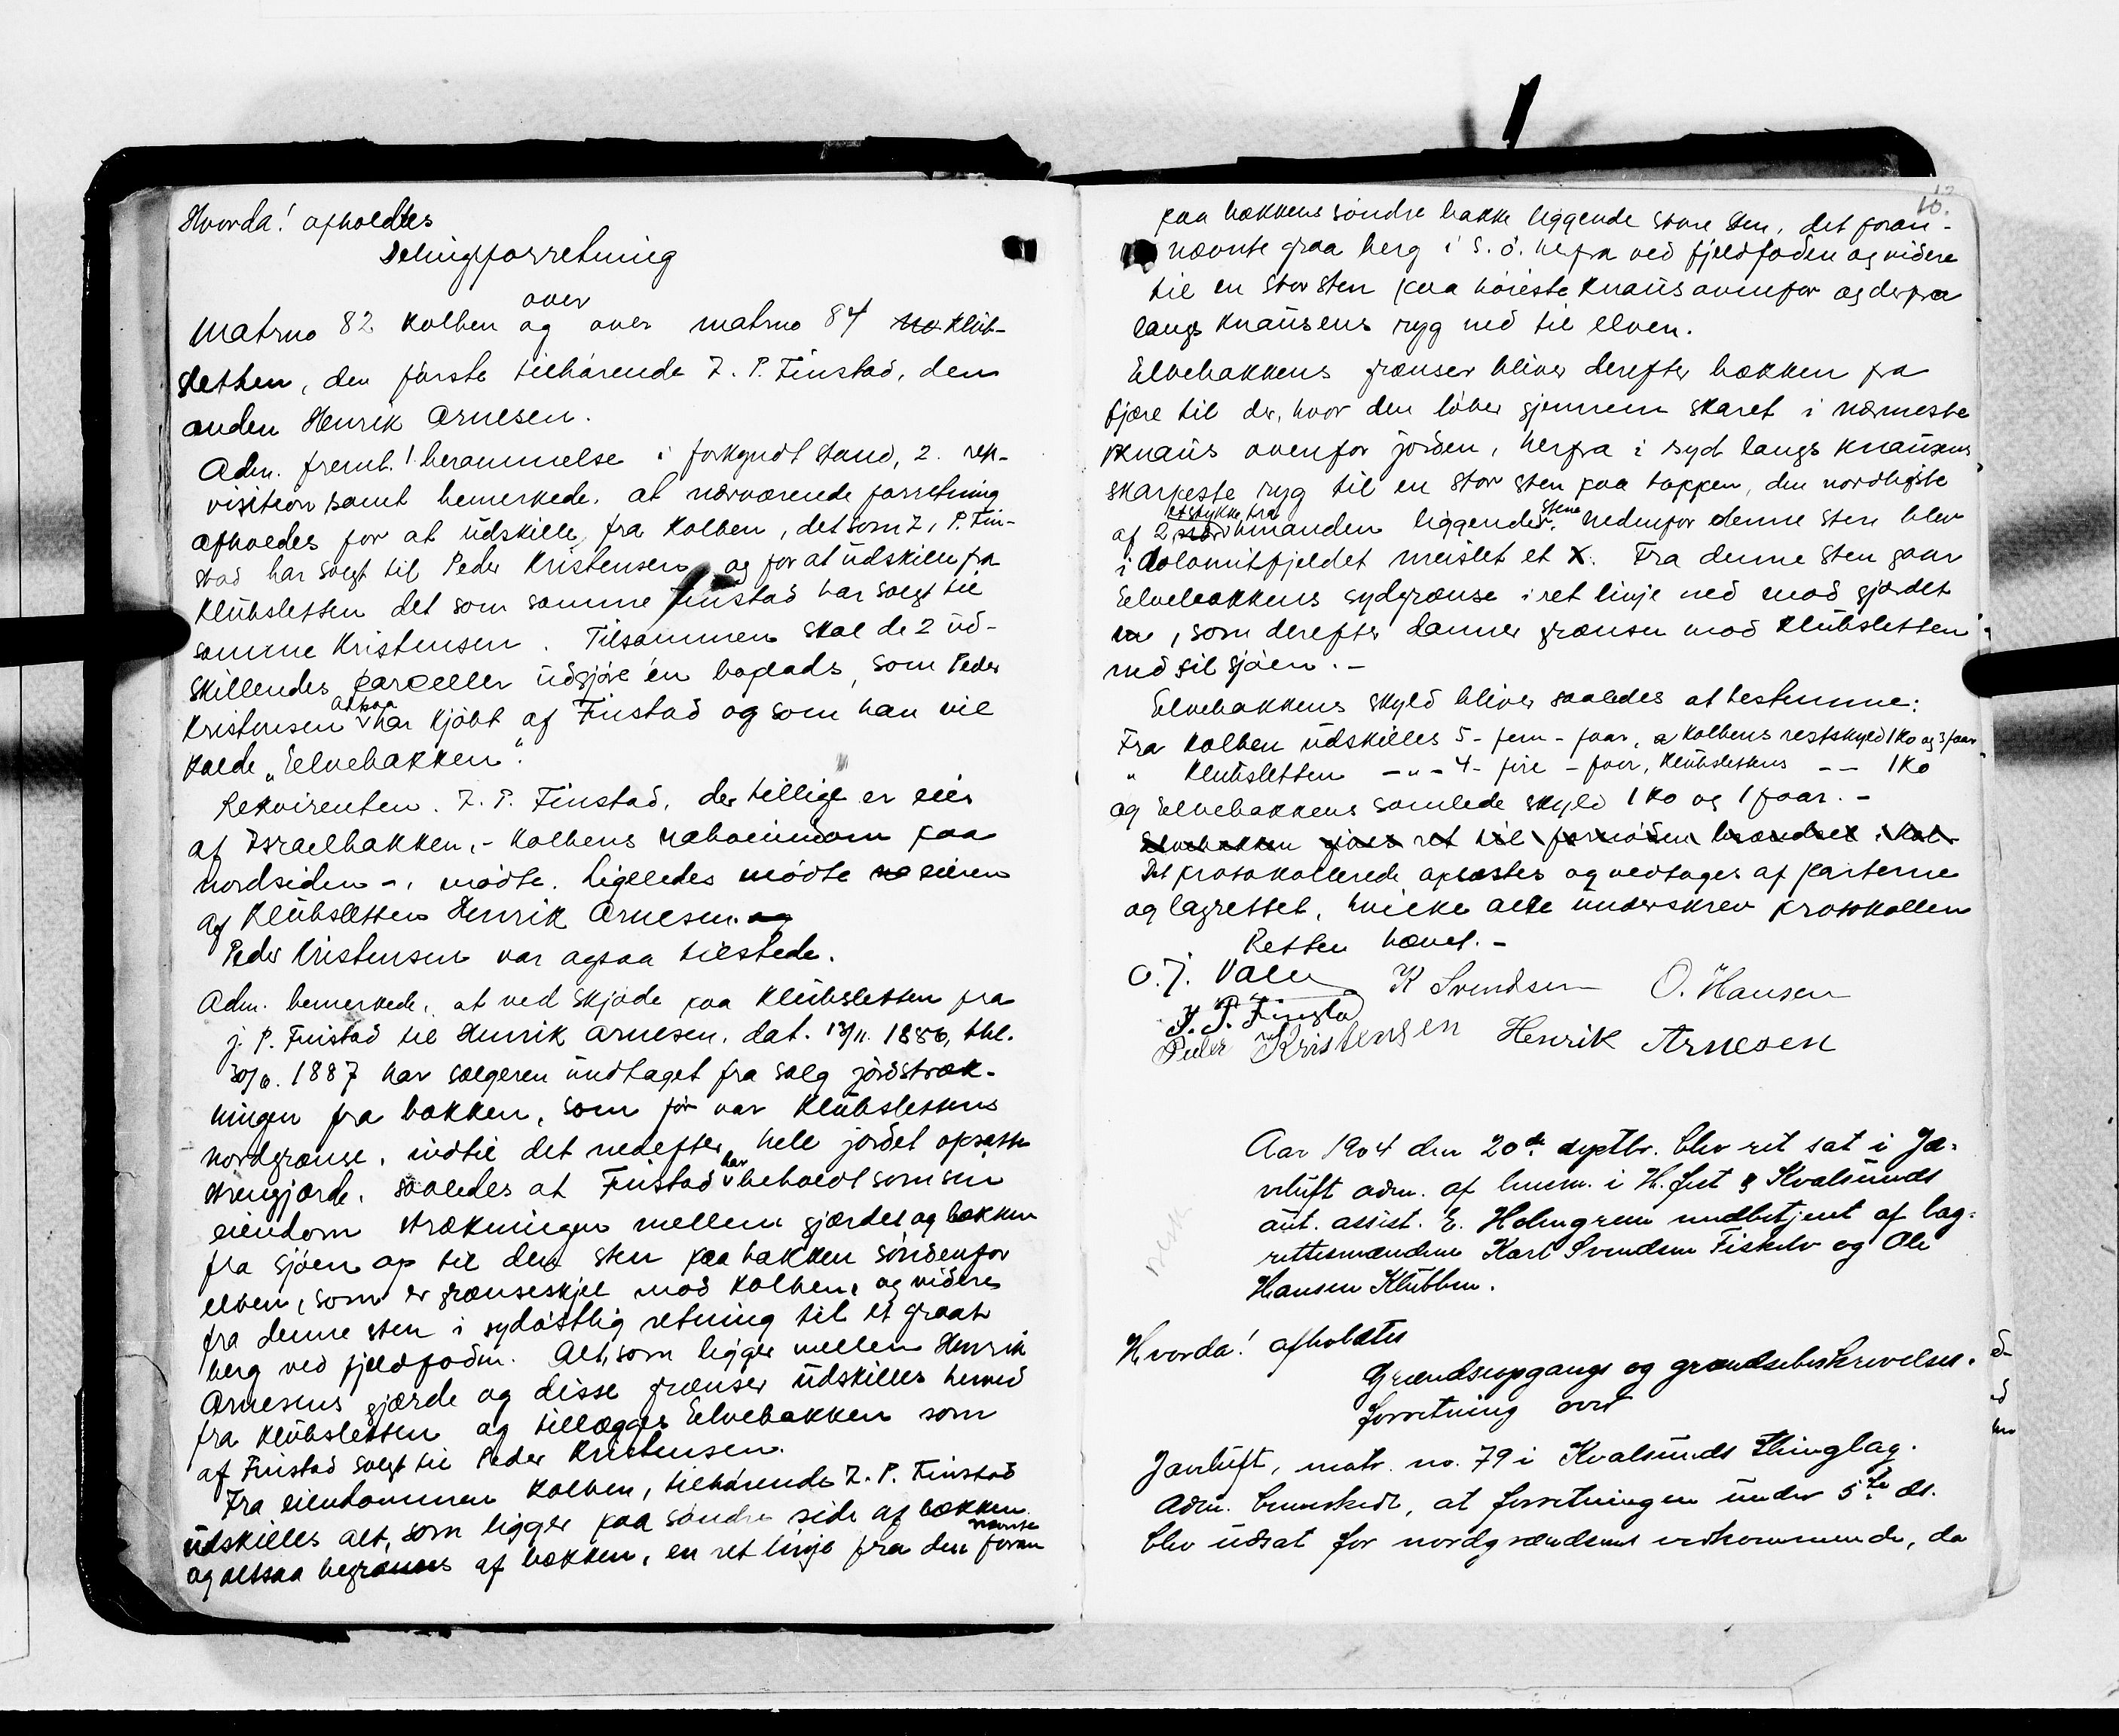 Hvorda! afholdtes
Delingsforretning
over
Matrno 82 Kolben og over matrno 84 Klub-
sletten, den første tilhørende Z. P. Finstad, den
anden Henrik Arnesen.
Adm. freml. 1. berammelse i forkyndt stand, 2. rek-
visition samt bemerkede, at nærværende forretning
afholdes for at udskille fra Kolben, det som Z. P. Fin-
stad har solgt til Peder Kristensen og for at udskille fra
Klubsletten det som samme Finstad har solgt til
samme Kristensen. Tilsammen skal de 2 ud-
skillendes parceller udgjøre én boplads, som Peder
Kristensen har kjøbt af Finstad og som han vil
kalde „Elvebakken".
Rekvirenten Z. P. Finstad, der tillige er eier
af Israelbakken, - Kolbens naboeiendom paa
nordsiden -, mødte. Ligeledes mødte eieren
af Klubsletten Henrik Arnesen
Peder Kristensen var ogsaa tilstede.
Adm. bemerkede, at ved skjøde paa Klubsletten fra
J. P. Finstad til Henrik Arnesen, dat. 13/11. 1886, thl.
30/6. 1887 har sælgeren undtaget fra salg jordstræk-
ningen fra bækken, som før var Klubslettens
nordgrænse, indtil det nedefter hele jordet opsatte
strengjærde, saaledes at Finstad har beholdt som sin
eiendom strækningen mellem gjærdet og bækken
fra sjøen op til den sten paa bakken søndenfor
elven, som er grænseskjel mod Kolben, og videre
fra denne sten i sydøstlig retning til et graat
berg ved fjeldfoden. Alt, som ligger mellem Henrik
Arnesens gjærde og disse grænser udskilles herved
fra Klubsletten og tillægges Elvebakken som
af Finstad solgt til Peder Kristensen.
Fra eiendommen Kolben, tilhørende Z. P. Finstad
udskilles alt, som ligger paa søndre side af bækken
og altsaa begrænses af bækken, en ret linje fra den foran nævnte
paa bækkens søndre bakke liggende store sten, det foran-
nævnte graa berg i S. Ø. herfra ved fjeldfoden og videre
til en stor sten paa høieste knaus ovenfor og derfra
langs knausens ryg ned til elven.
Elvebakkens grænser bliver derefter bækken fra
fjære til der, hvor den løber gjennem skaret i nærmeste
knaus ovenfor jorden, herfra i syd langs knausens
skarpeste ryg til en stor sten paa toppen, den nordligste
af 2 et stykke fra hinanden liggende stene. Nedenfor denne sten blev
i dolomitfjeldet meislet et X. Fra denne sten gaar
Elvebakkens sydgrænse i ret linje ned mod gjærdet
, som derefter danner grænsen mod Klubsletten
ned til sjøen. -
Elvebakkens skyld bliver saaledes at bestemme:
Fra Kolben udskilles 5 - fem - faar, Kolbens restskyld 1 ko og 3 faar
" Klubsletten - " - 4 - fire - faar, Klubslettens - - 1 ko
og Elvebakkens samlede skyld 1 ko og 1 faar. -
Elvebakken gives ret til fornøden brændsel i Kol-
Det protokollerede oplæstes og vedtoges af parterne
og lagrettet, hvilke alle underskrev protokollen
Retten hævet. -
O. J. Vale K Svendsen O. Hansen
J. P. Finstad
Peder Kristensen Henrik Arnesen
Aar 1904 den 20de septbr. blev ret sat i Ja-
vrluft adm. af lensm. i H.fest & Kvalsunds
aut. assist. E. Holmgren medbetjent af lag-
rettesmændene Karl Svendsen Fiskelv og Ole
Hansen Klubben.
Hvorda! afholdtes
Grændseopgangs og grændsebeskrivelses-
forretning over
Javrluft, matr. no. 79 i Kvalsunds Thinglag.
Adm. bemerkede, at forretningen under 5te ds.
blev udsat for nordgrændsens vedkommende, da